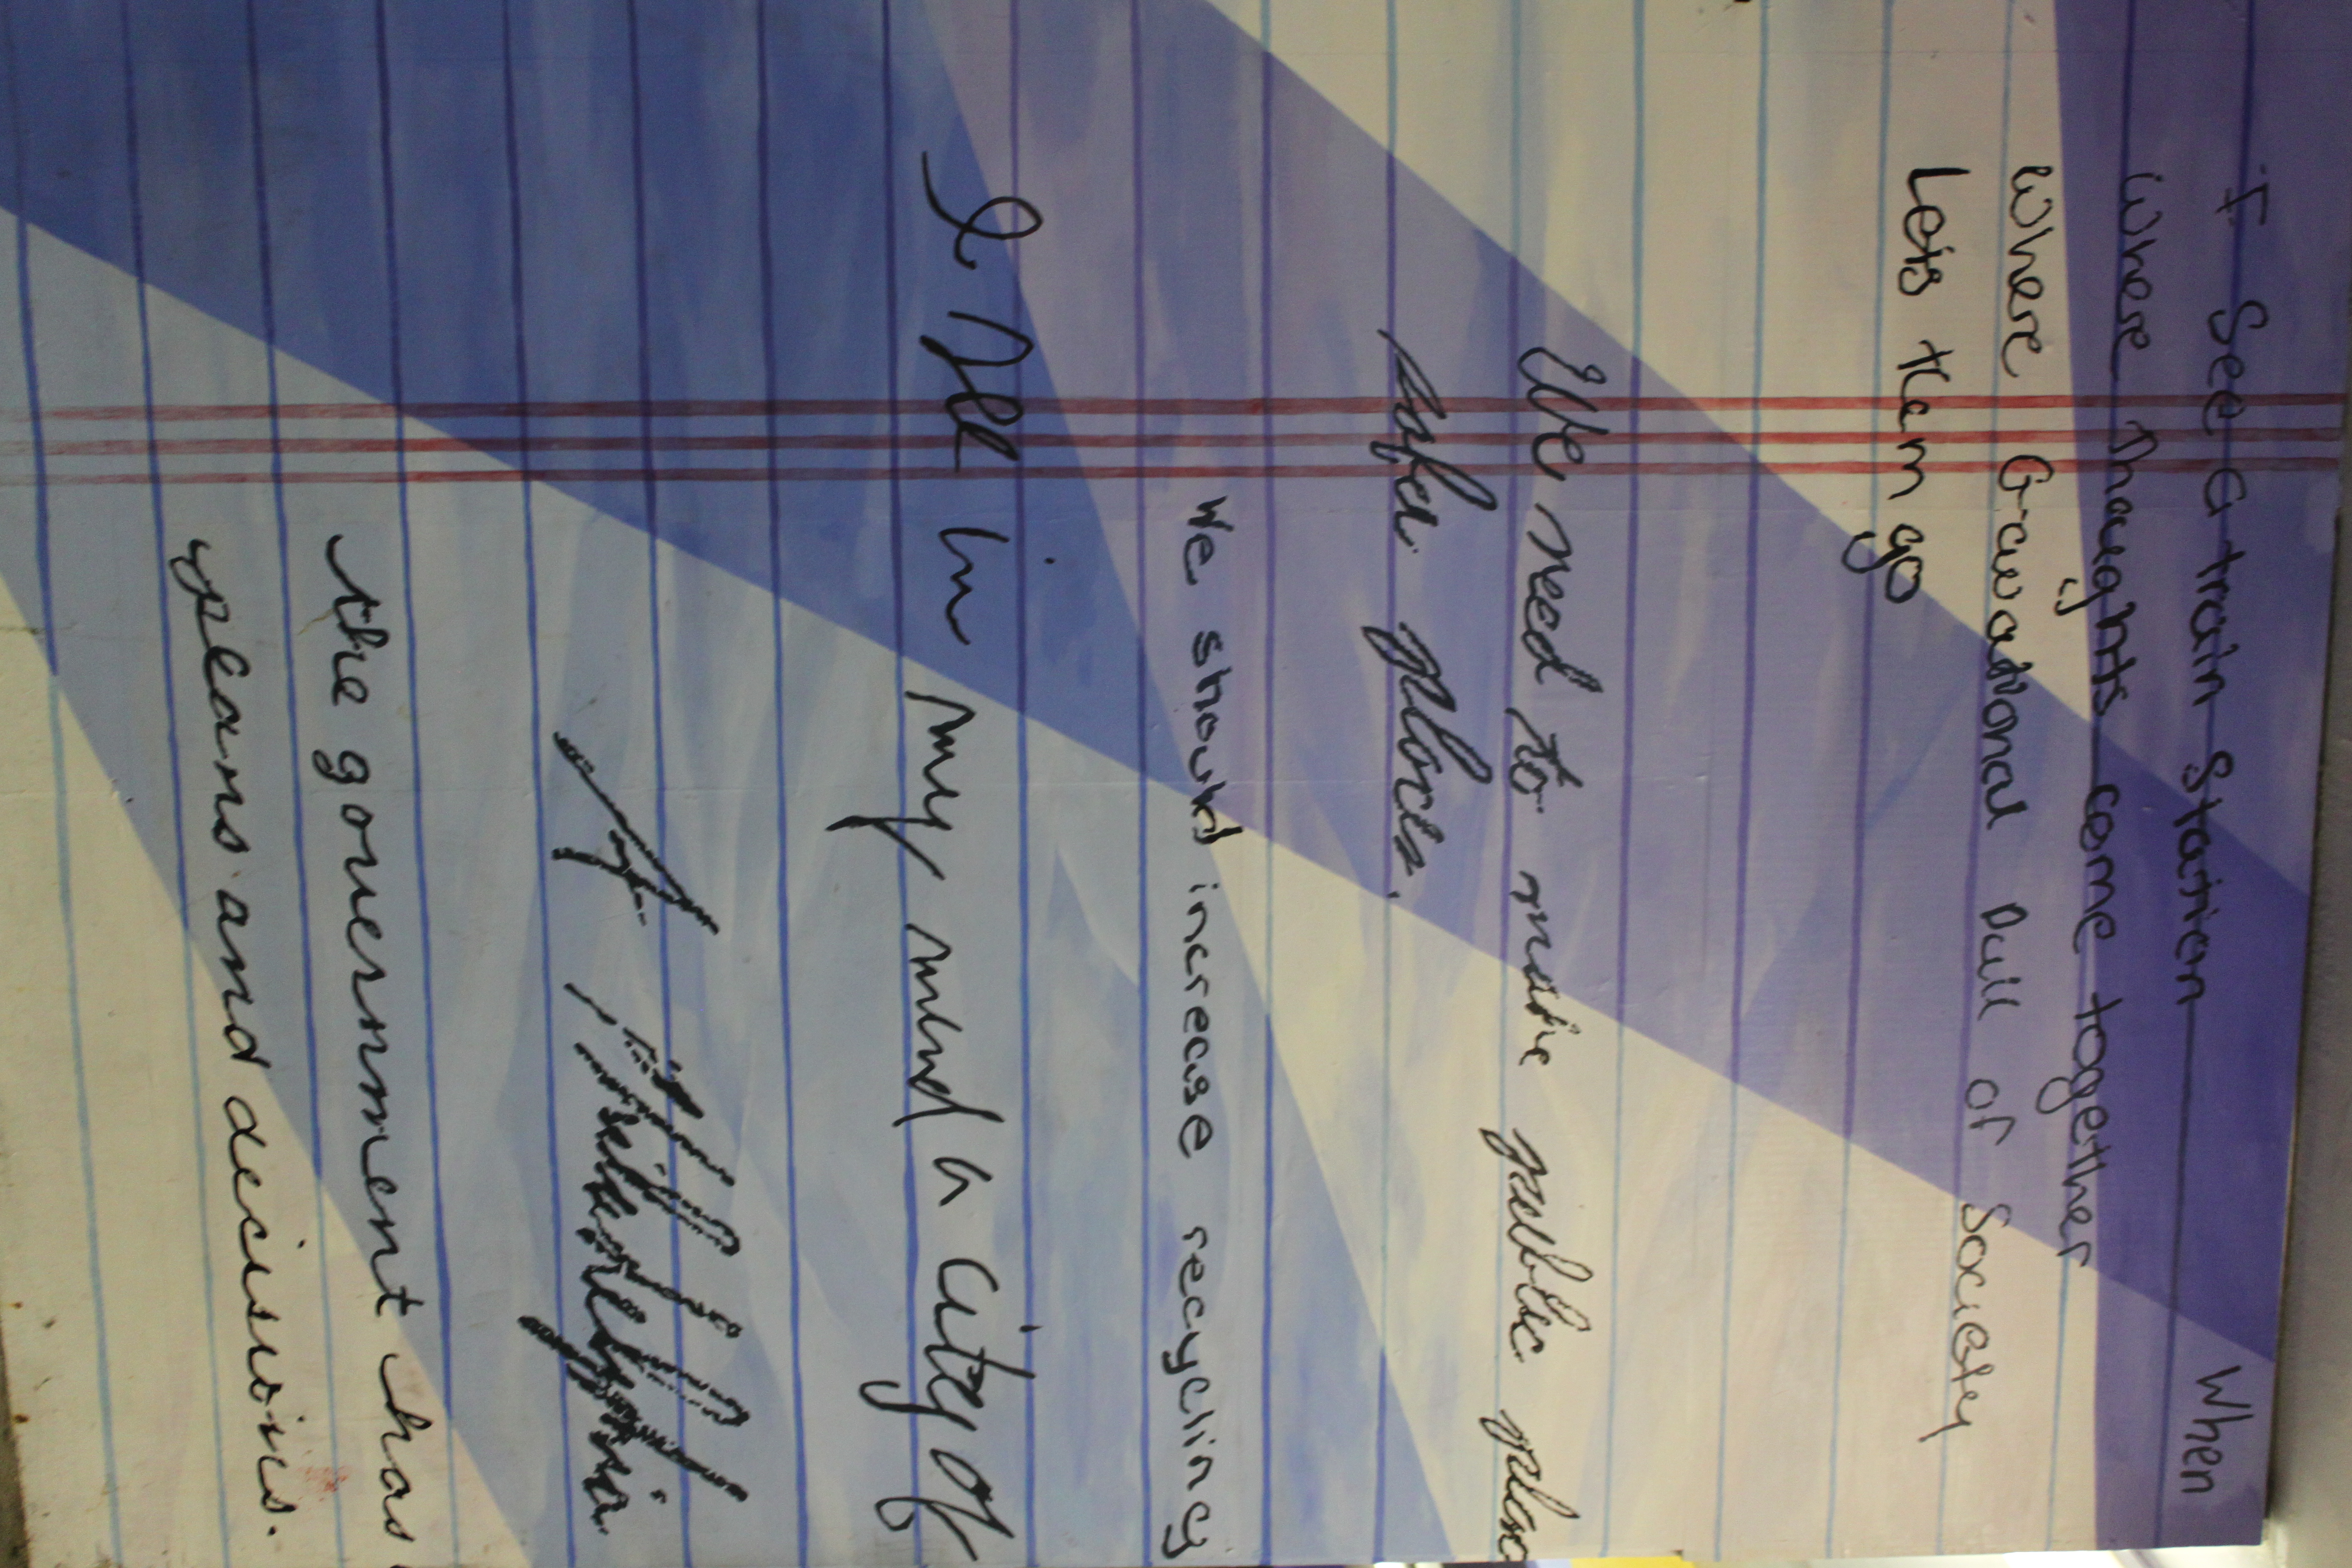 I See a train Station When
Where Thoughts come together
Where Gravational Pull of Society
is
Lets them go
We need to make public
safer places.
We should increase recycling
I see in my mind a city of
the government has
plans and decisions.